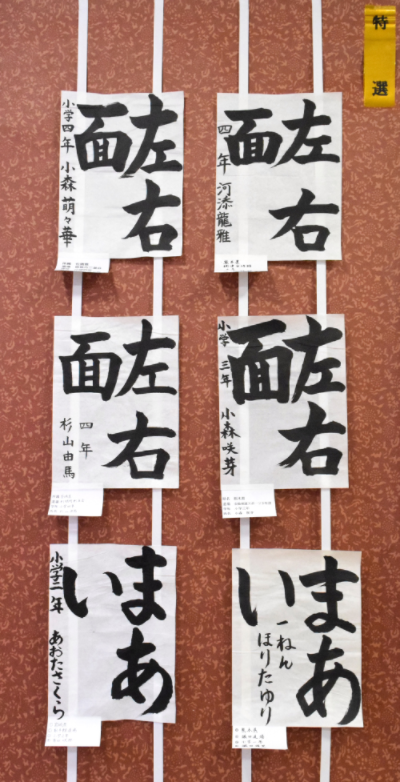 特選
左右
面
四年 河添龍雅
左右
面
小学四年 小森萌々華
左右
面
小学三年 小森咲芽
左右
面
四年
杉山由馬
まあ
い
一ねん
ほりたゆり
まあ
い
小学一年 あおたさくら